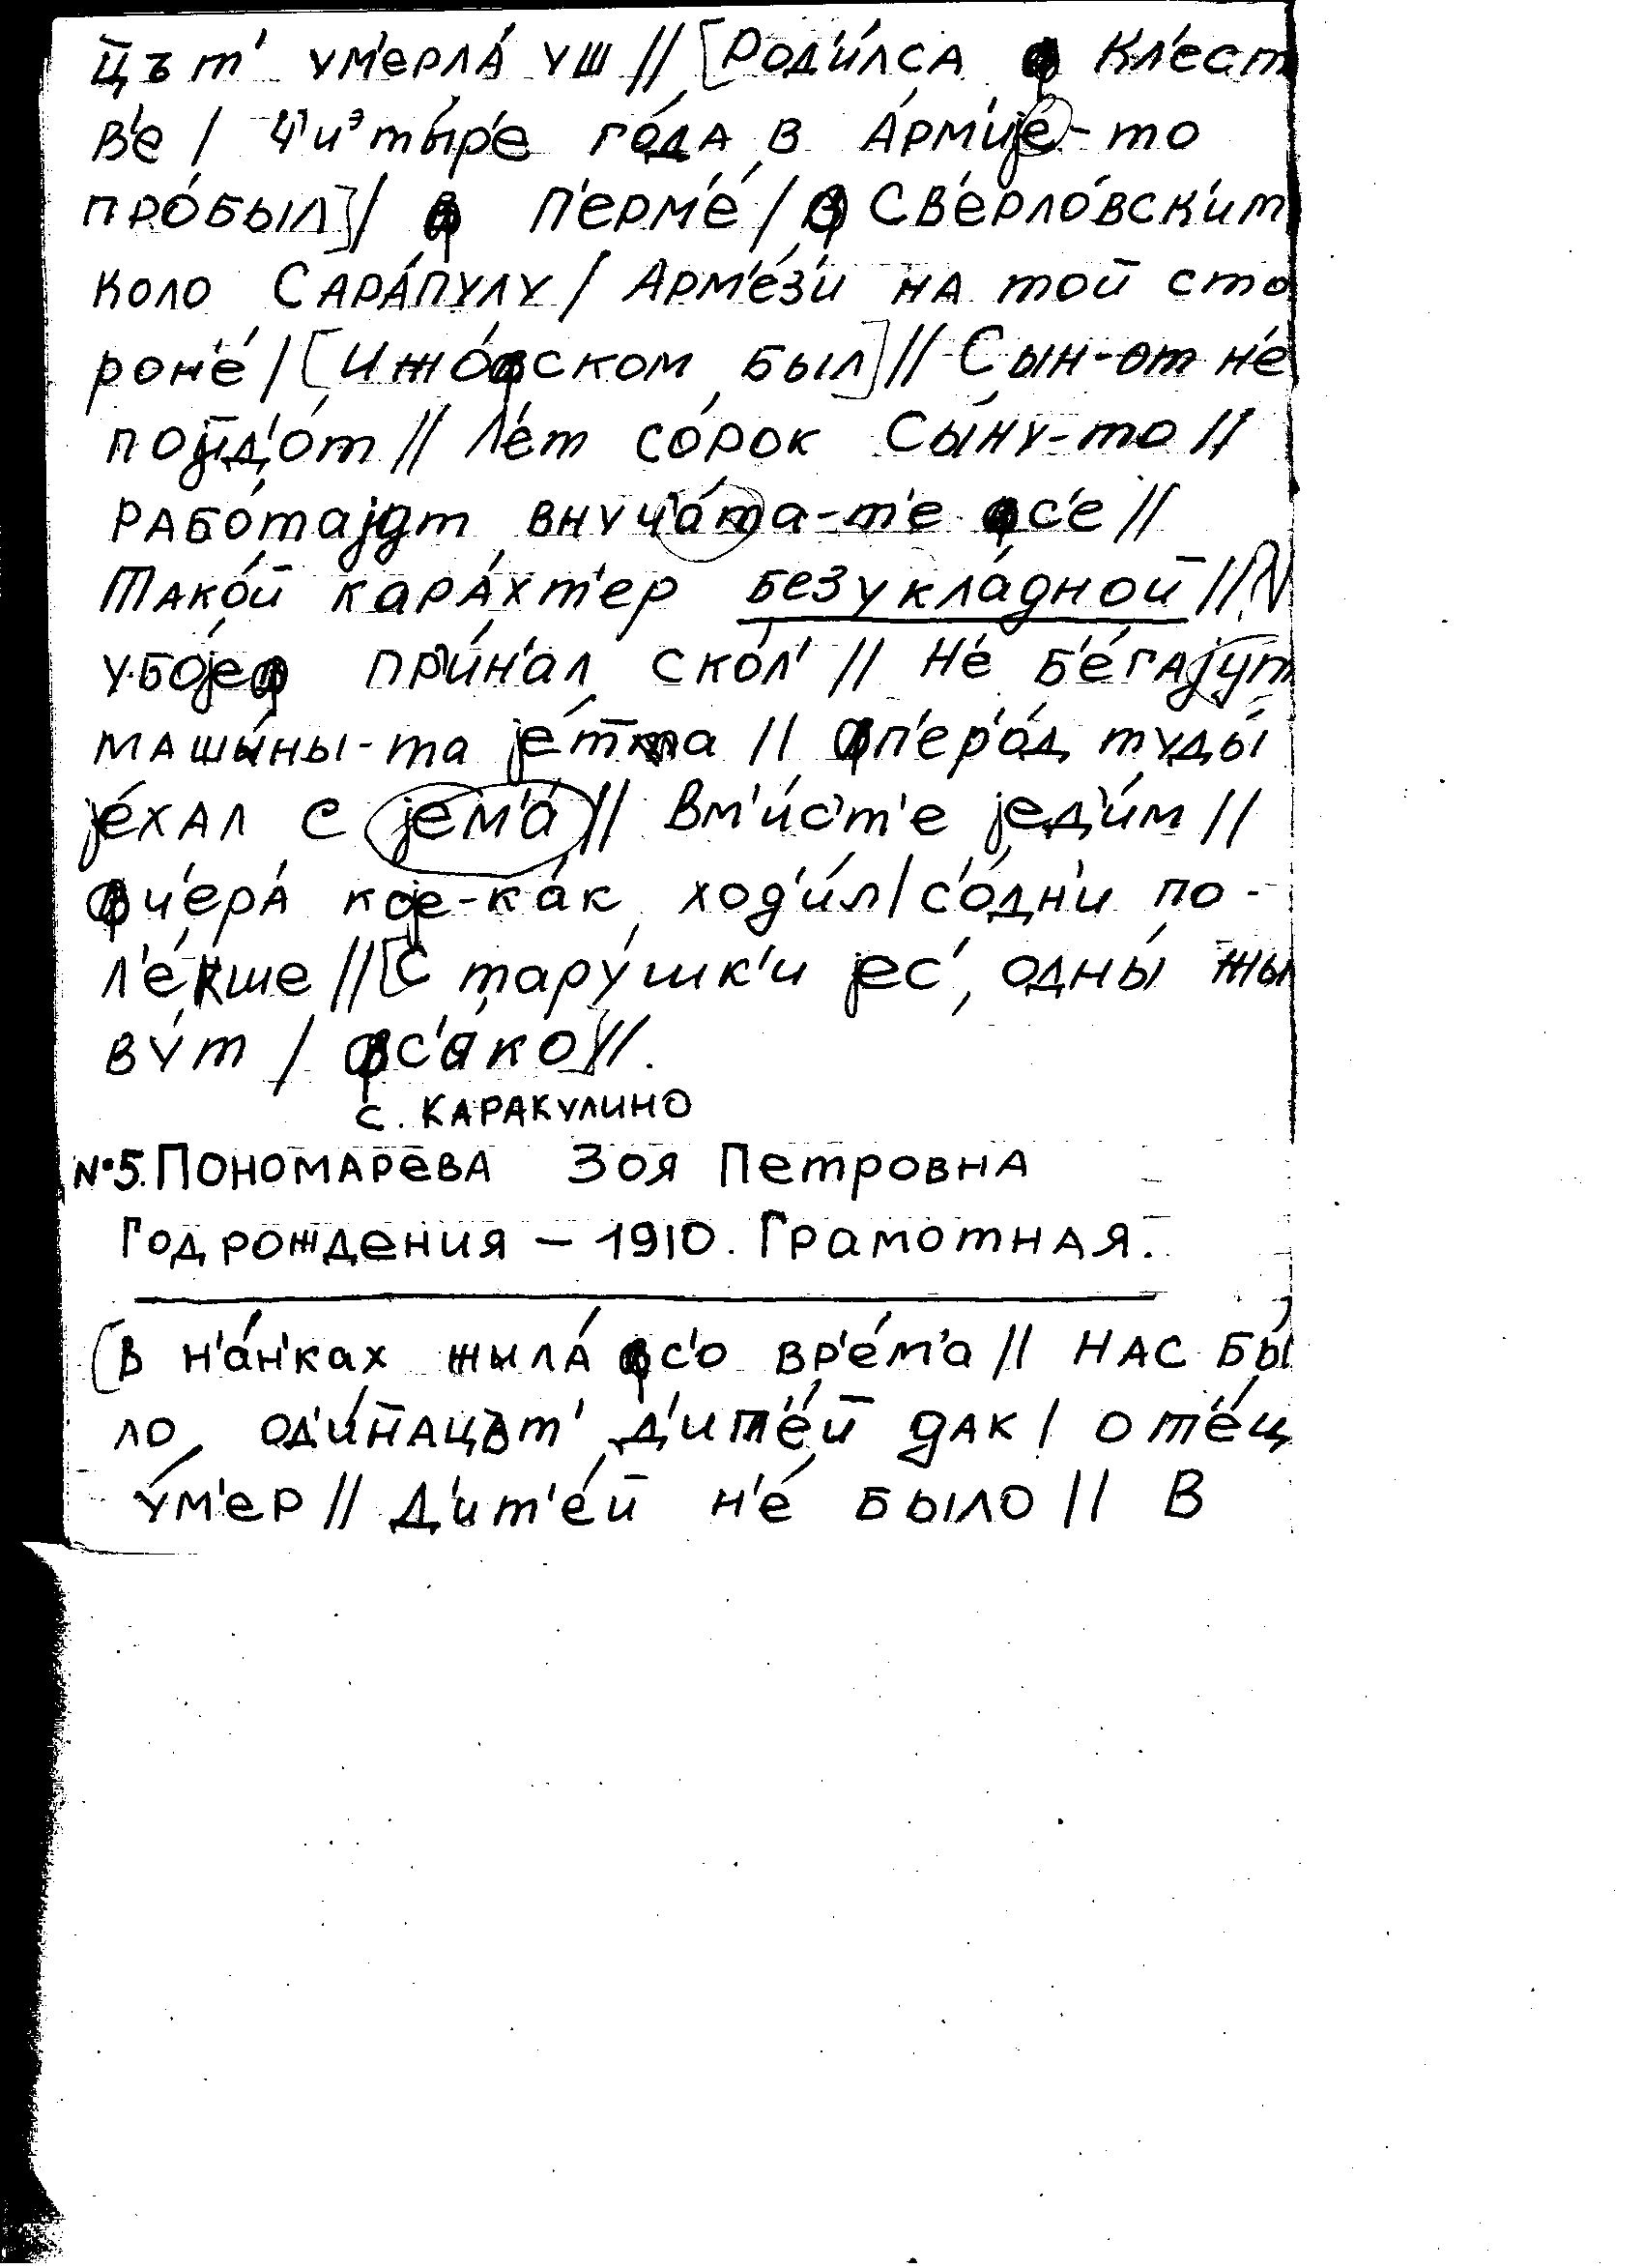 ц̄ът' ум'ерла́ уш // [Род'и́лса ф Кл'ест
в'е / Ч'иэты́р'е го́да в А́рм'иjе-то
про́был] / ф П'ерм'е́ / ф Св'ерло́вск'ит
коло Сара́пулу / Арм'е́з'и на той сто
рон'е́ / [Ижо́фском был] // Сын-от н'е́
поjд'о́т // Л'ет со́рок Сы́ну-то //
Рабо́таjут внуч'а́та-т'е фс'е //
Тако́й кара́хт'ер безукла́дной //
убоjеф при́н'ал скол' // Н'е́ б'е́гаjут
машы́ны-та jе́т̄а // фп'ер'о́д туды́
jе́хал с jем'а́ // Вм'и́с'т'е jед'и́м //
фч'ера́ коjе-ка́к ход'и́л / с'о́дн'и по-
л'е́кше // [Стару́шк'и jес', одны́ жы
ву́т / фс'а́ко] //.
с. Каракулино
№5. Пономарева Зоя Петровна
Год рождения – 1910. Грамотная.
[В н'а́н'ках жыла́ фс'о вр'е́м'а // нас бы́
ло од'и́н̄ацът' д'ит'е́й дак / от'е́ц
у́м'ер // Д'ит'е́й н'е́ было // В